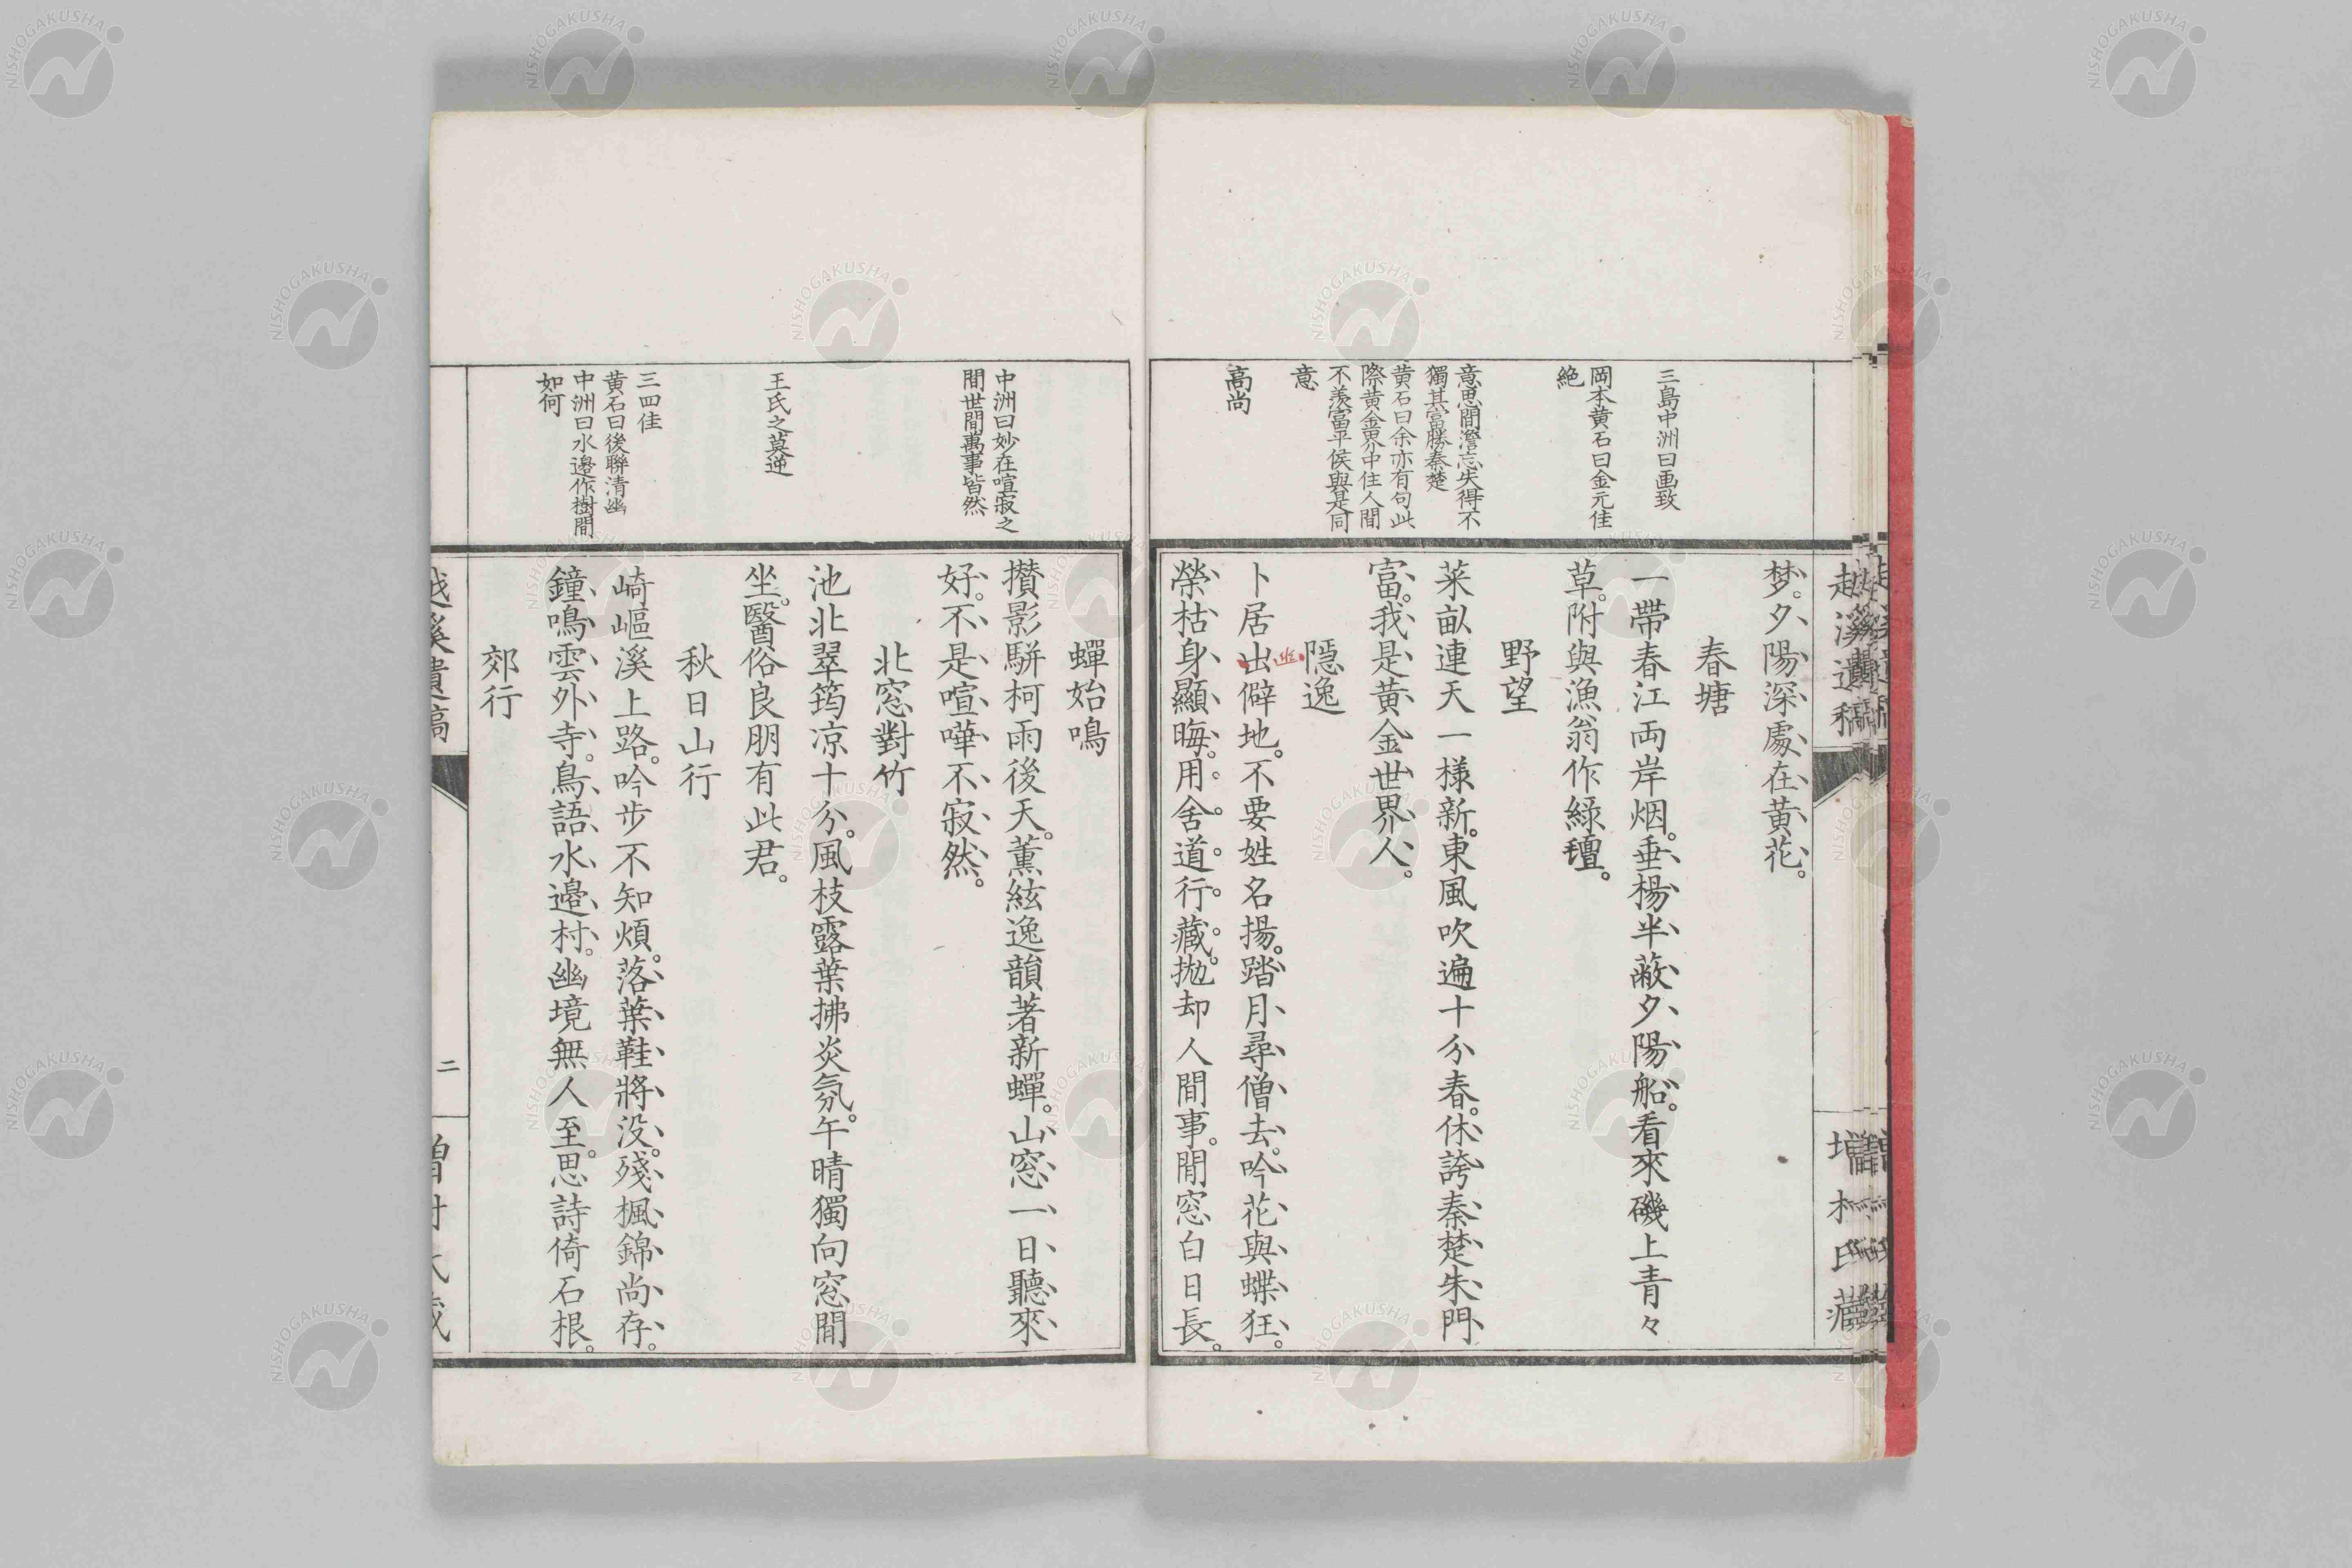 三島中洲曰画致
岡本黄石曰金元佳
絶
意思間澹忘失得不
獨其富勝秦楚
黄石曰余亦有句此
際黄金界中住人間
不羨富平侯與是同
意
高尚
夢。夕陽深處在黄花。
春塘
一帶春江両岸烟。垂楊半蔽夕陽船。看來磯上青々
草。附與漁翁作緑氊。
野望
菜畝連天一様新。東風吹遍十分春。休誇秦楚朱門
富。我是黄金世界人。
隠逸
卜居出僻地。不要姓名揚。踏月尋僧去。吟花與蝶狂。
榮枯身顯晦。用舍道行藏。抛却人間事。閒窓白日長。
越溪遺稿
増村氏藏
中洲曰妙在喧寂之
間世間萬事皆然
王氏之莫逆
三四佳
黄石曰後聯清幽
中洲曰水邊作樹間
如何
蟬始鳴
攢影駢柯雨後天。薫絃逸韻著新蟬。山窓一日聽來
好。不是喧嘩不寂然。
北窓對竹
池北翠筠凉十分。風枝露葉拂炎氛。午晴獨向窓間
坐。醫俗良朋有此君。
秋日山行
崎嶇溪上路。吟步不知煩。落葉鞋將没。殘楓錦尚存。
鐘鳴雲外寺。鳥語水邊村。幽境無人至。思詩倚石根。
郊行
越溪遺稿
二
増村氏藏
NISHOGAKUSHA